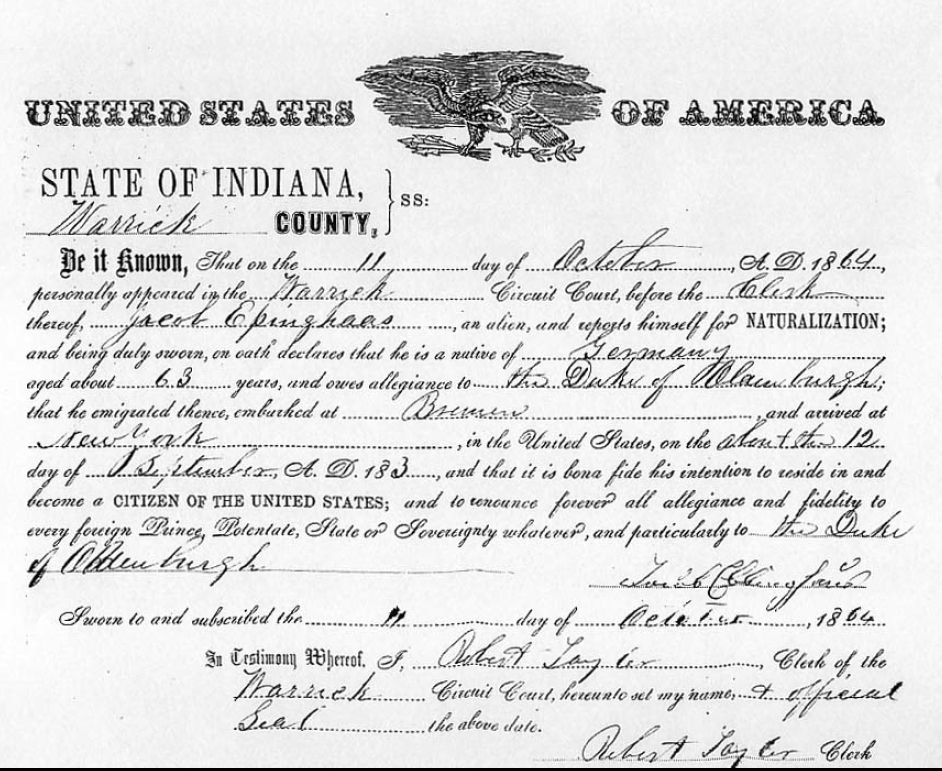 UNITED STATES OF AMERICA
STATE OF INDIANA,
Warrick COUNTY, } SS:
Be it Known, That on the 11 day of October, A. D. 1864,
personally appeared in the Warrick Circuit Court, before the Clerk
thereof, Jacob Epinghaas, an alien, and reports himself for NATURALIZATION;
and being duly sworn, on oath declares that he is a native of Germany
aged about 63 years, and owes allegiance to the Duke of Oldenburgh;
that he emigrated thence, embarked at Bremen, and arrived at
New York, in the United States, on the about the 12
day of September, A. D. 183, and that it is bona fide his intention to reside in and
become a CITIZEN OF THE UNITED STATES; and to renounce forever all allegiance and fidelity to
every foreign Prince, Potentate, State or Sovereignty whatever, and particularly to the Duke
of Oldenburgh
Sworn to and subscribed the 11 day of October, 1864
In Testimony Whereof, I, Robert Taylor, Clerk of the
Warrick Circuit Court, hereunto set my name, & official
Seal the above date.
Robert Taylor Clerk